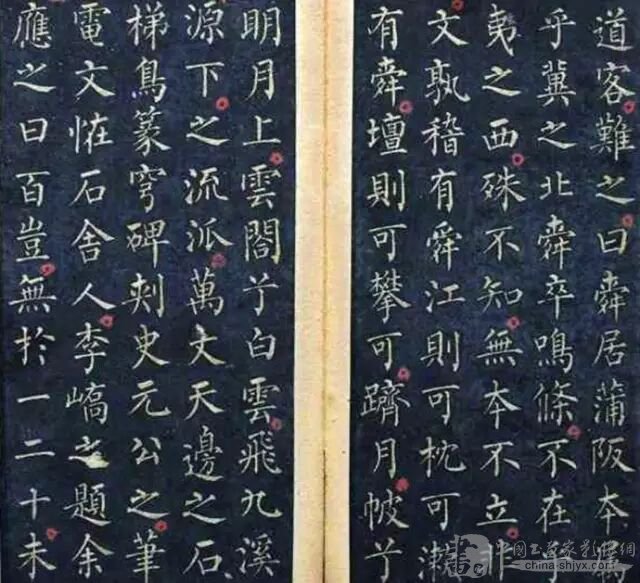 道客難之曰舜居蒲阪本
乎冀之北舜卒鳴條不在
夷之西殊不知無本不立非
文孰稽有舜江則可枕可漱
有舜壇則可攀可躋月帔兮
明月上雲閣兮白雲飛九溪
源下之流派萬丈天邊之石
梯鳥篆穹碑刺史元公之筆
雷文恠石舍人李嶠之題余
應之曰百豈無於一二十未
china-shjyx.com